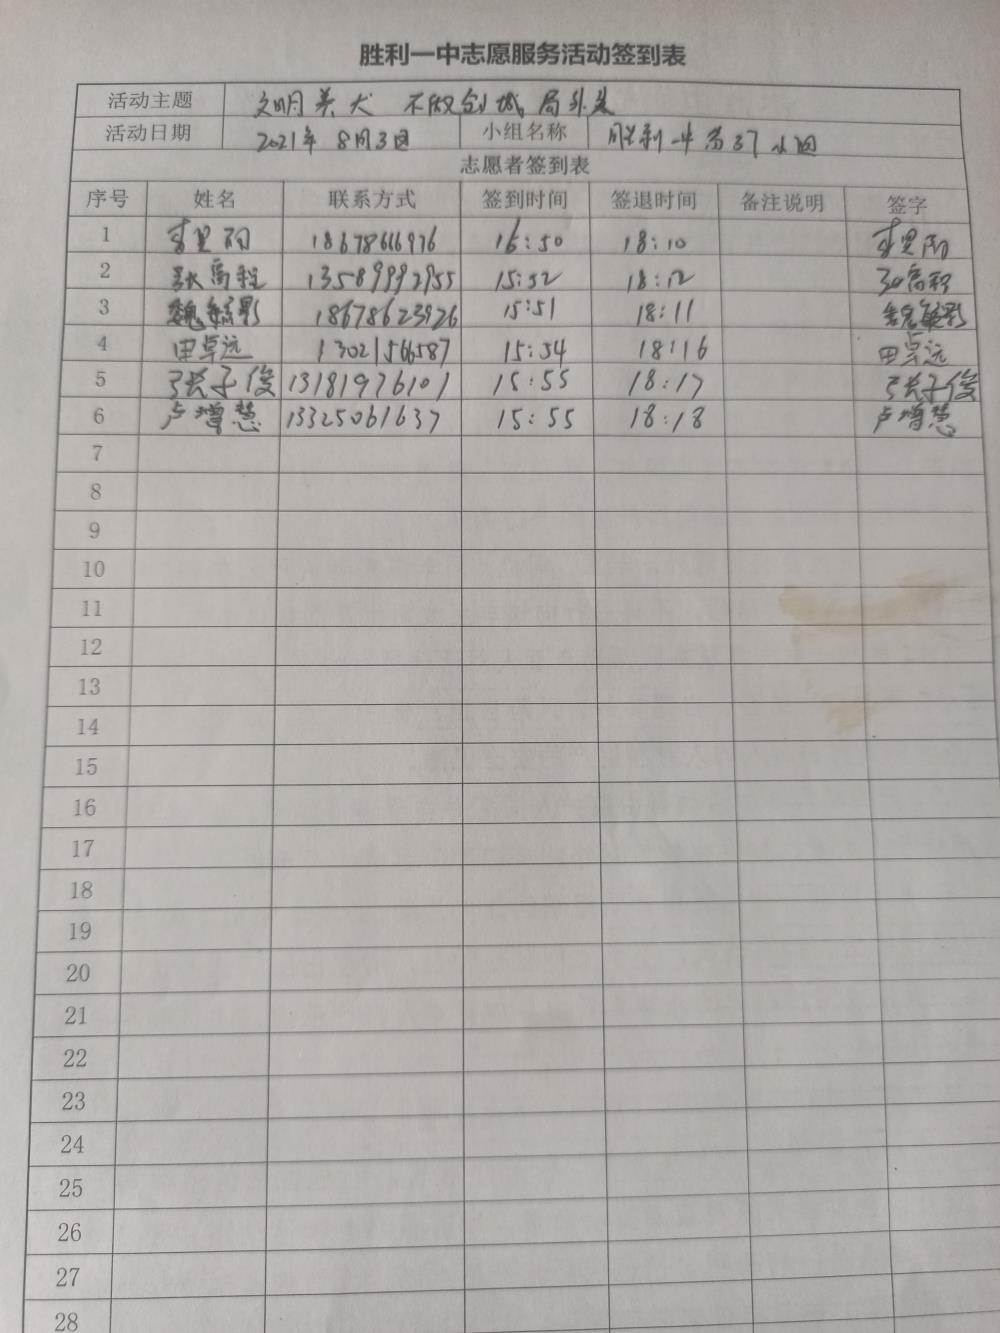 胜利一中志愿服务活动签到表
活动主题 文明养犬 不做创城局外人
活动日期 2021年8月3日 小组名称 胜利一中 37小组
志愿者签到表
序号 姓名 联系方式 签到时间 签退时间 备注说明 签字
1 18678616976 16:50 18:10
2 13589992955 15:52 18:12
3 18678623926 15:51 18:11
4 田卓远 13021566587 15:54 18:16 田卓远
5 张子俊 13181976101 15:55 18:17 张子俊
6 卢增慧 13325061637 15:55 18:18 卢增慧
7
8
9
10
11
12
13
14
15
16
17
18
19
20
21
22
23
24
25
26
27
28